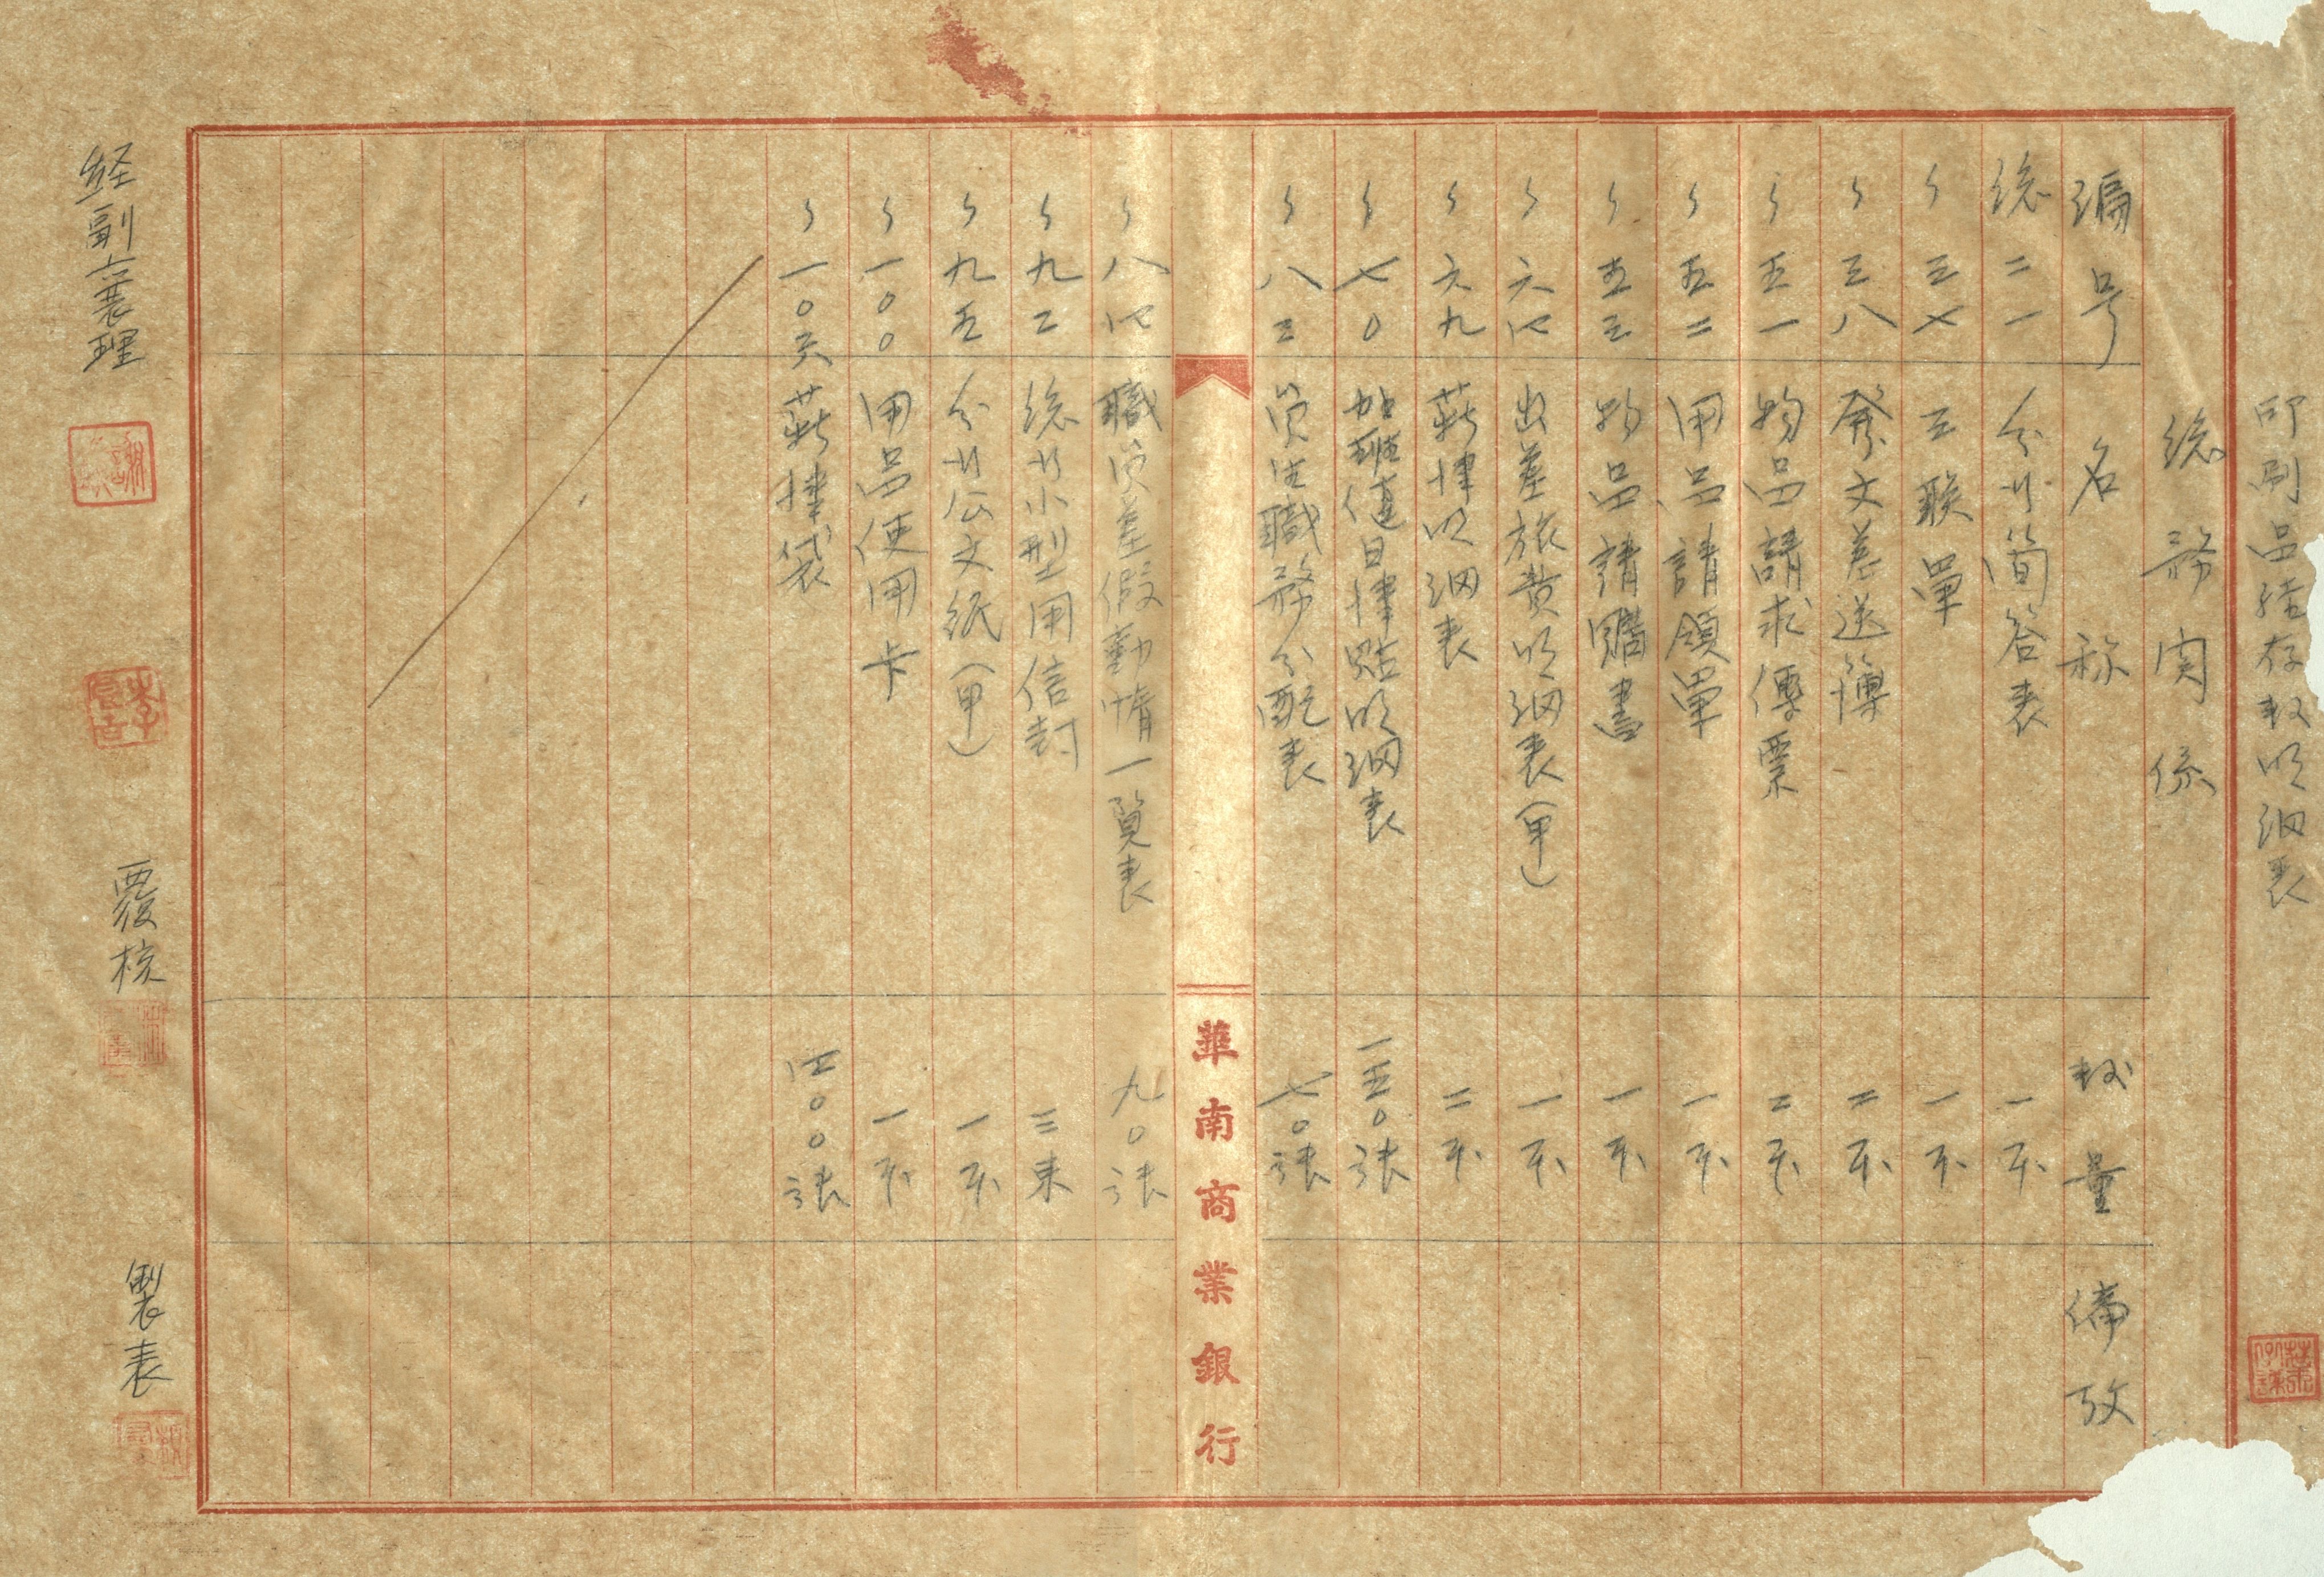 印刷品結存数明細表
総務関係
編号 名称 数量 備攷
総二一 分行簡答表 一本
〃三七 三联單 一本
〃三八 発文差送簿 二本
〃五一 物品請求傳票 二本
〃五二 用品請領單 一本
〃五三 物品請購書 一本
〃六四 出差旅費明細表(甲) 一本
〃六九 薪津明細表 二本
〃七〇 加班值日津貼明細表 一五〇張
〃八三 員生職務分配表 七〇張
華南商業銀行
〃八四 職員差假勤惰一覧表 九〇張
〃九二 総行小型用信封 三束
〃九五 分行公文紙(甲) 一本
〃一〇〇 用品使用卡 一本
〃一〇三 薪津袋 四〇〇張
経副襄理
覆核
製表